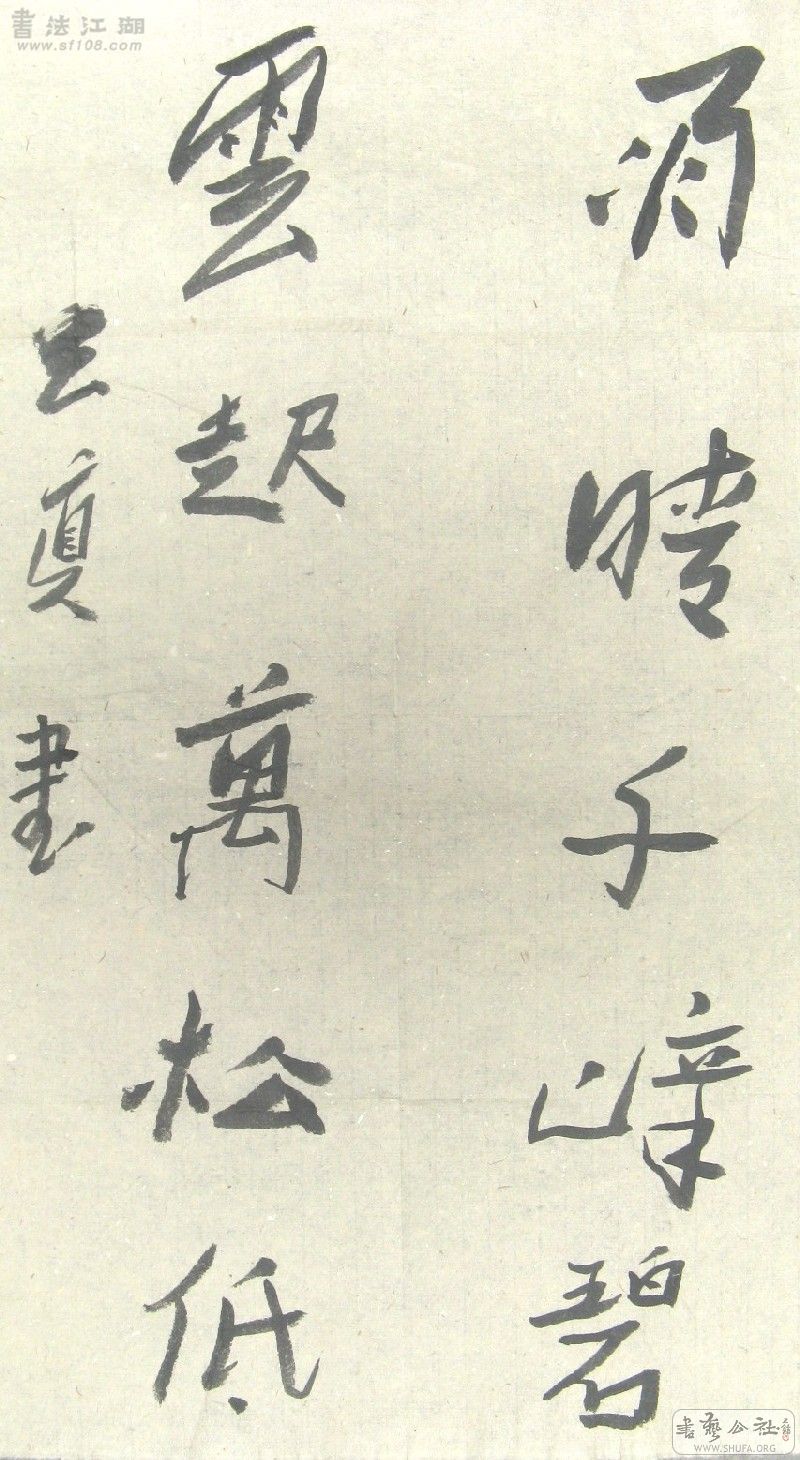 雨晴千嶂碧
雲起萬松低
真書
書法江湖
www.sf108.com
書藝公社
WWW.SHUFA.ORG